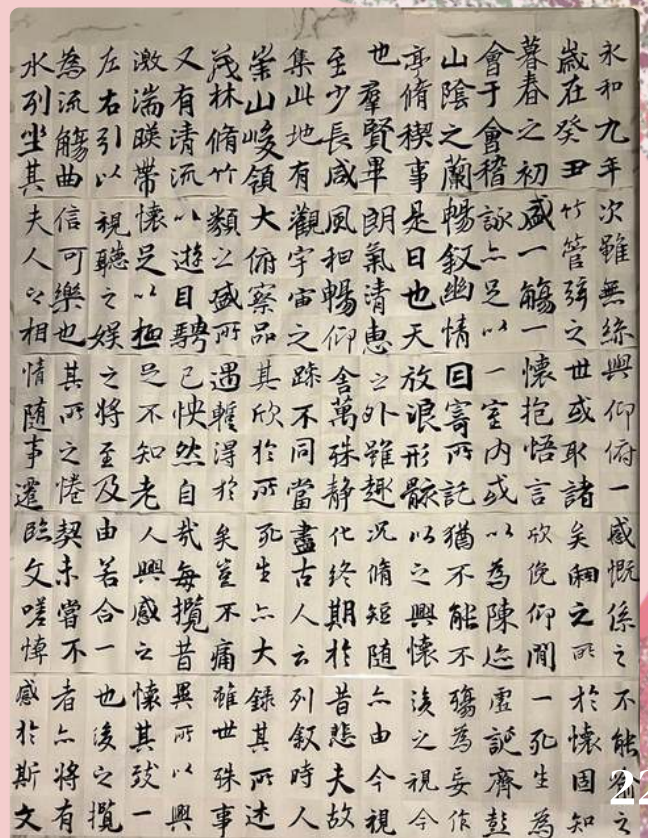 永和九年
歲在癸丑
暮春之初
會于會稽
山陰之蘭
亭脩稧事
也羣賢畢
至少長咸
集此地有
崇山峻領
茂林脩竹
又有清流
激湍暎帶
左右引以
為流觴曲
水列坐其
次雖無絲
竹管弦之
盛一觴一
詠亦足以
暢叙幽情
是日也天
朗氣清惠
風和暢仰
觀宇宙之
大俯察品
類之盛所
以遊目騁
懷足以極
視聽之娛
信可樂也
夫人之相
與仰俯一
世或取諸
懷抱悟言
一室内或
囙寄所託
放浪形骸
之外雖趣
舍萬殊静
躁不同當
其欣於所
遇蹔得於
己怏然自
足不知老
之將至及
其所之惓
情随事遷
感慨係之
矣向之所
欣俛仰間
以為陳迹
猶不能不
以之興懷
况脩短随
化終期於
盡古人云
死生亦大
矣豈不痛
哉每攬昔
人興感之
由若合一
契未嘗不
臨文嗟悼
不能喻之
於懷固知
一死生為
虚誕齊彭
殤為妄作
後之視今
亦由今視
昔悲夫故
列叙時人
録其所述
雖世殊事
異所以興
懷其致一
也後之攬
者亦將有
感於斯文
22